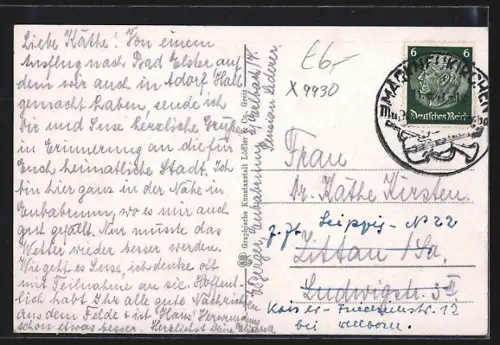 Liebe Käthe! Von einem
Ausflug nach Bad Elster auf
dem wir auch in Adorf Halt
gemacht haben, sende ich
Dir und Suse herzliche Grüße
in Erinnerung an die für
Euch heimatliche Stadt. Ich
bin hier ganz in der Nähe in
Eubabrunn, wo es mir auch
gut gefällt. Nur müsste das
Wetter wieder besser werden.
Wie geht es Suse, ich denke oft
mit Teilnahme an sie. Hoffent-
lich habt Ihr alle gute Nachricht
aus dem Felde & ist Hans'
schon etwas besser. Herzlichst Deine
Graphische Kunstanstalt Löffler & Co., Greiz
Eubabrunn
Pension
E6,-
X 9930
6 6
Deutsches Reich
MARKNEUKIRCHEN
Frau
Dr. Käthe Kirsten
z. Zt. Leipzig - N 22
Zittau i/Sa.
Ludwigstr. 3 II
12
bei